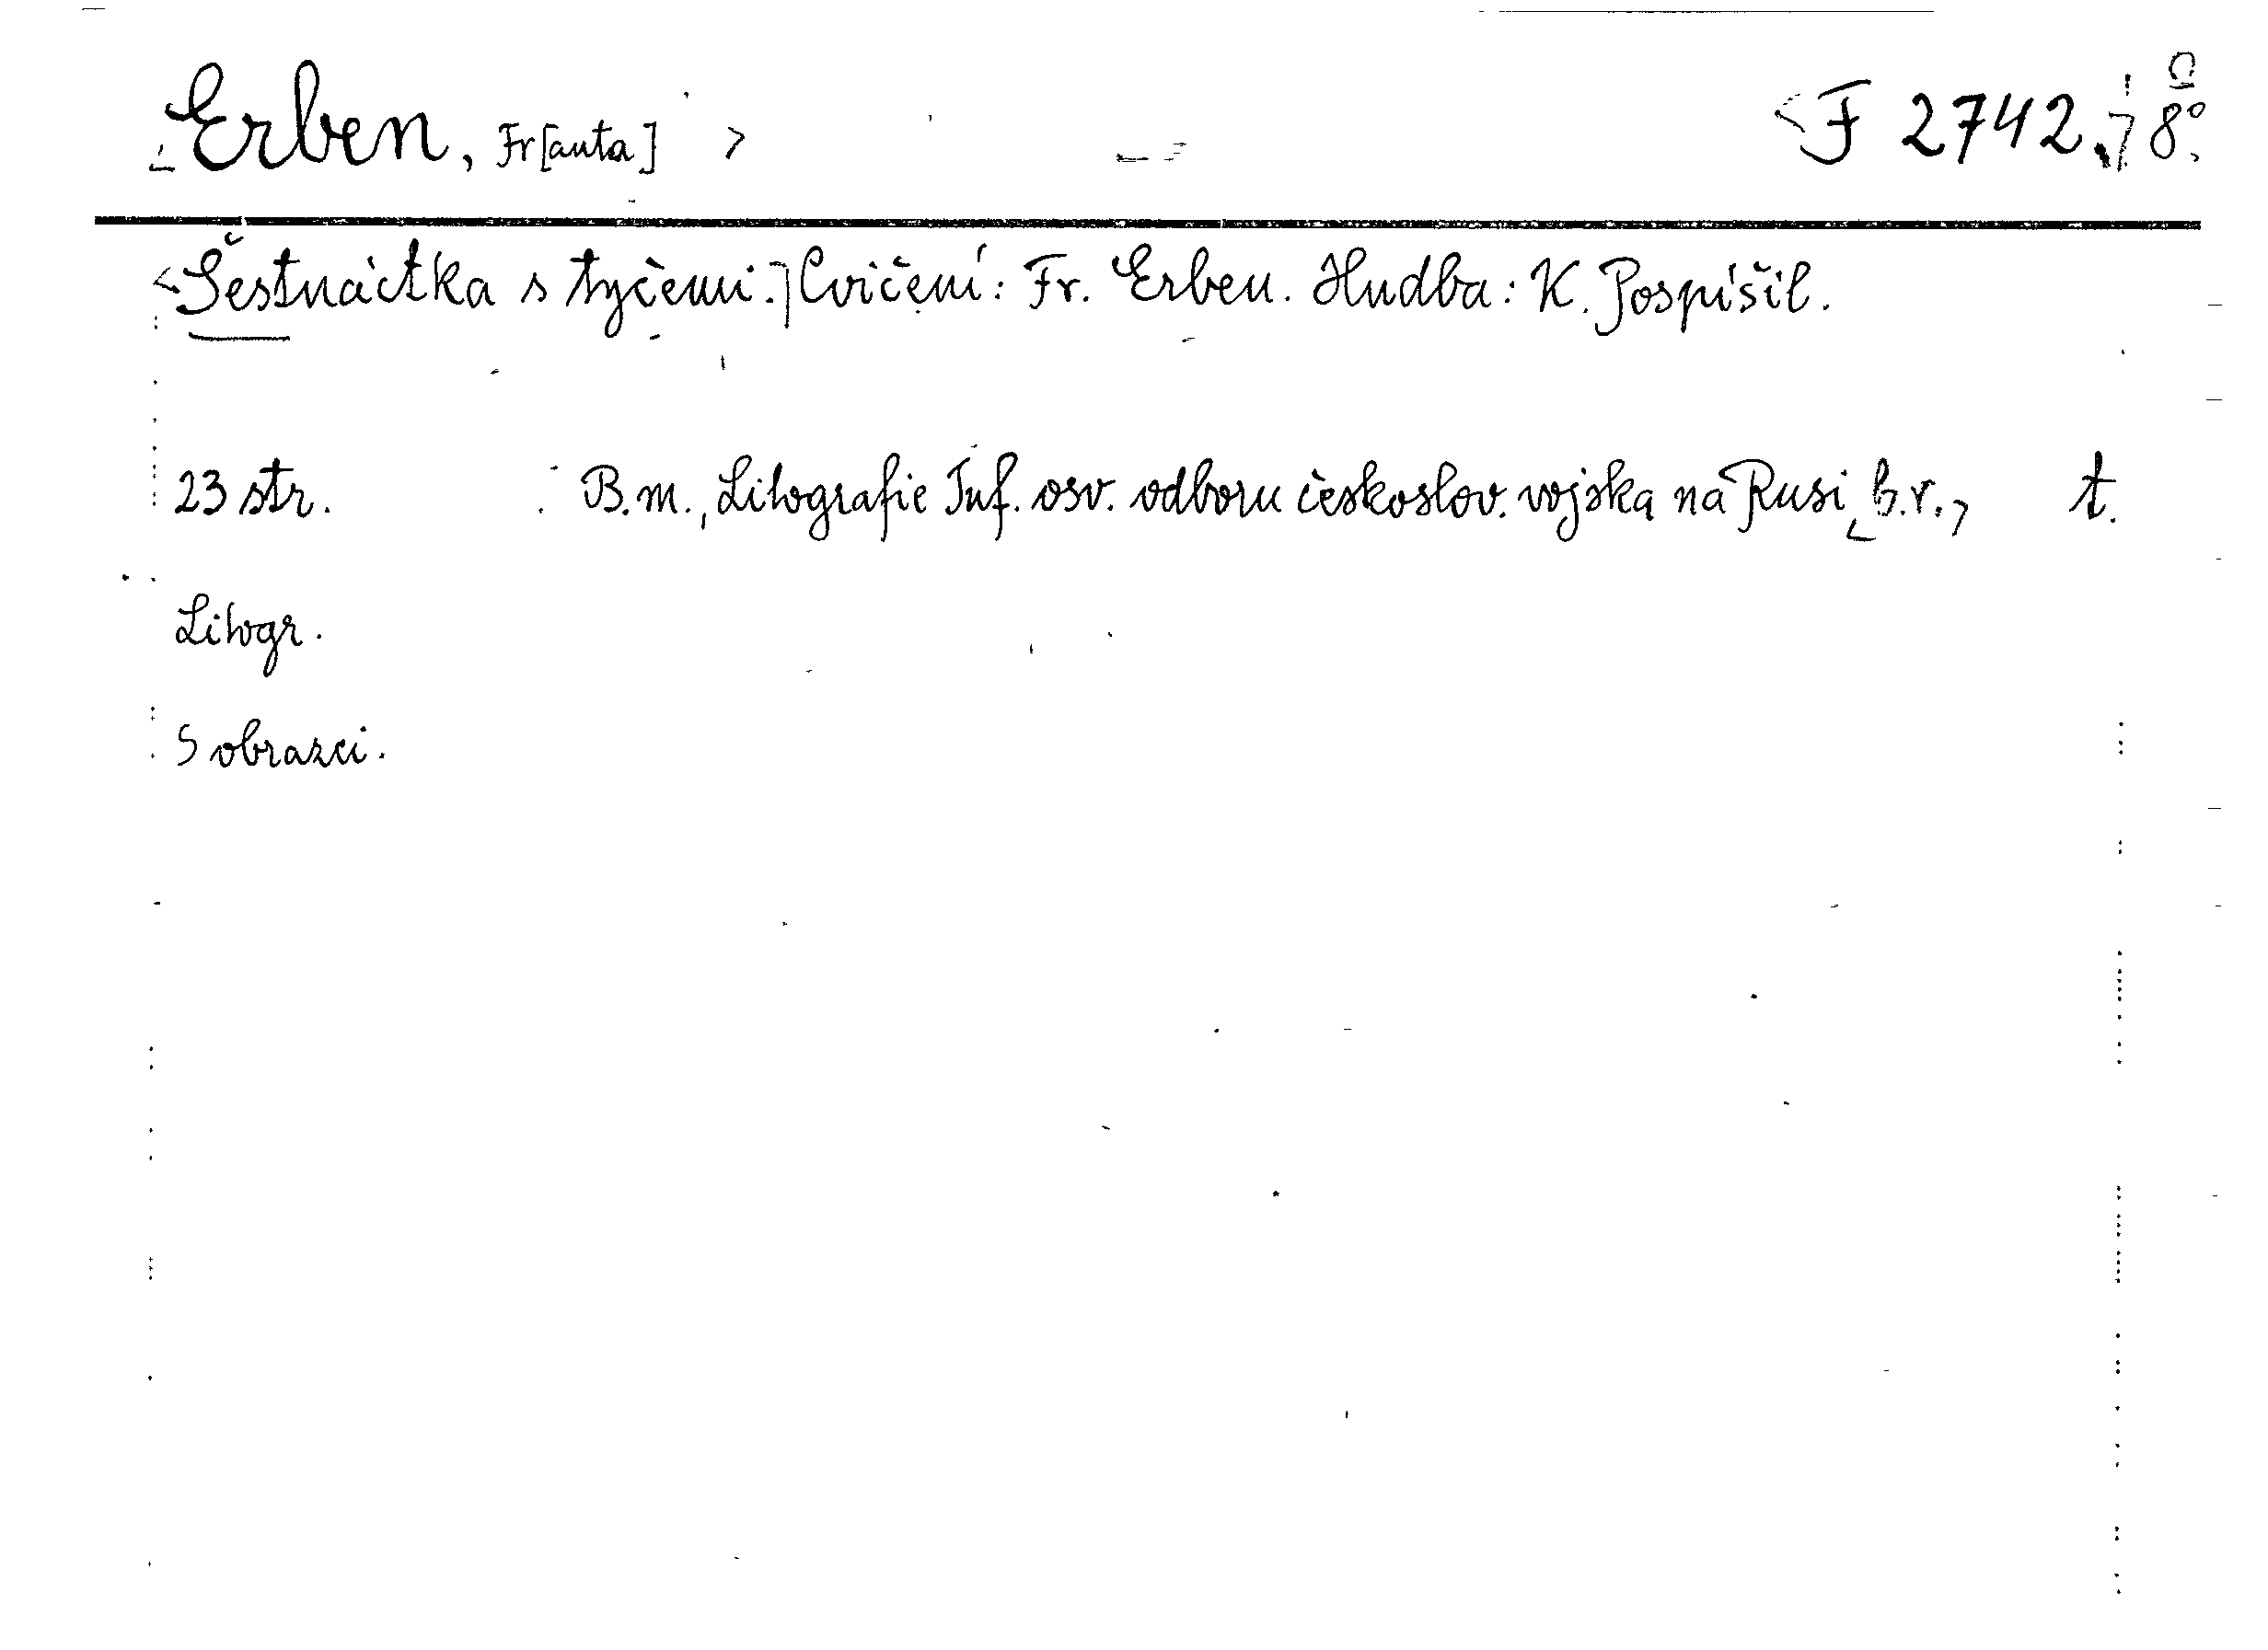 Erben, Fr[anta] F 2742. 8°.
Šestnáctka s tyčemi. Cvičení: Fr. Erben. Hudba: K. Pospíšil.
23 str. B.m., Litografie Inf. osv. odboru československ. vojska na Rusi, b.r., t.
Litogr.
S obrazci.